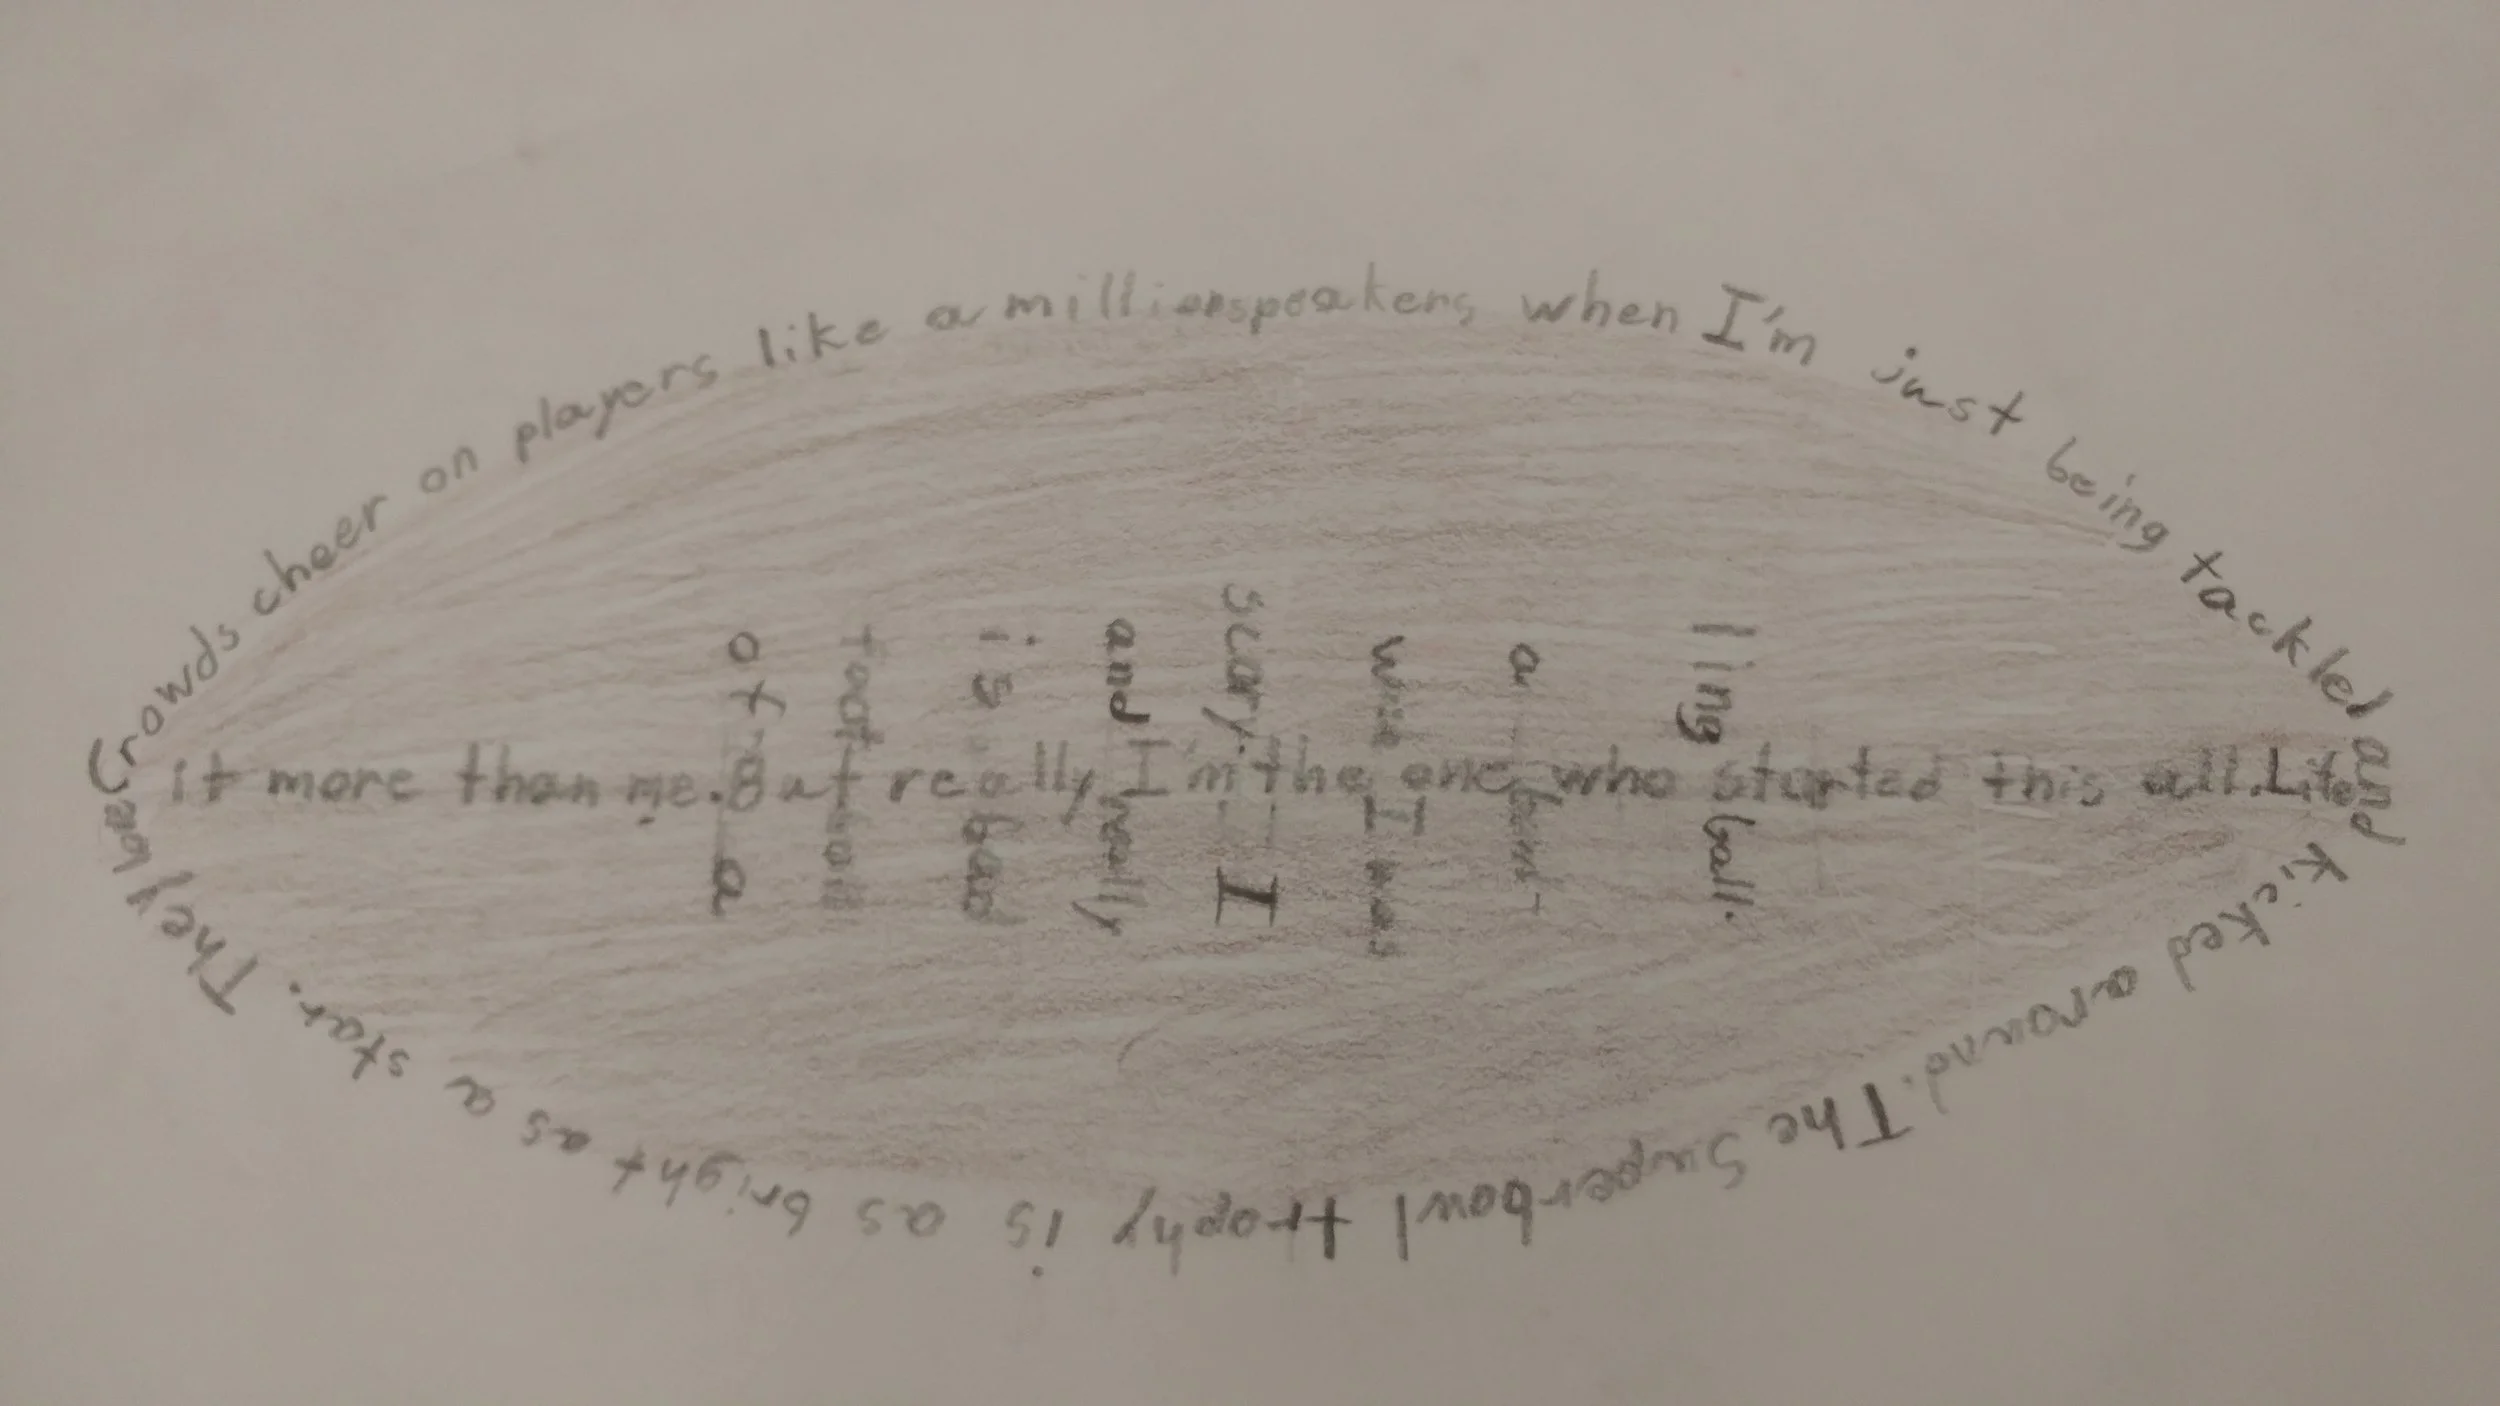 Crowds cheer on players like a million speakers when I'm just being tackled and kicked around. The Superbowl trophy is as bright as a star. They
it more than me. But really I'm the one who started this all. Life
of a
football
is bad
and really
scary. I
wish I was
a
ling ball.